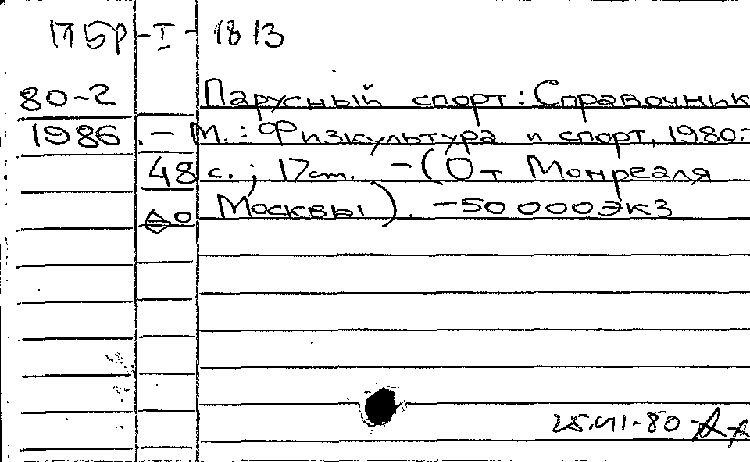 ПБР-I-1813
80-2 Парусный спорт: Справочник
1986 . - М.: Физкультура и спорт, 1980.-
48 с.; 17 см. - (От Монреаля
до Москвы). - 50 000 экз